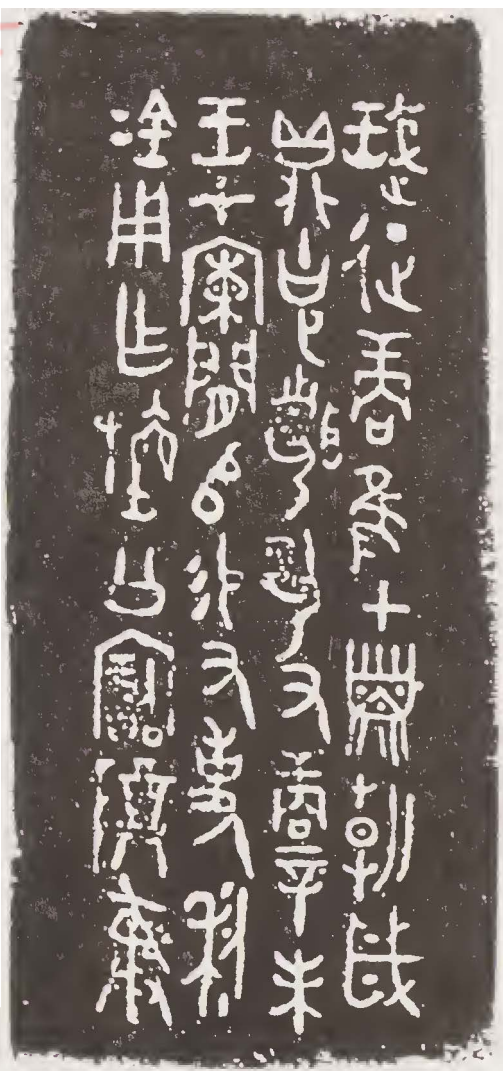 珷征商隹甲子朝歲
鼎克聞夙又商辛未
王才闌𠂤易又事利
金用乍𣄰公寶尊彝